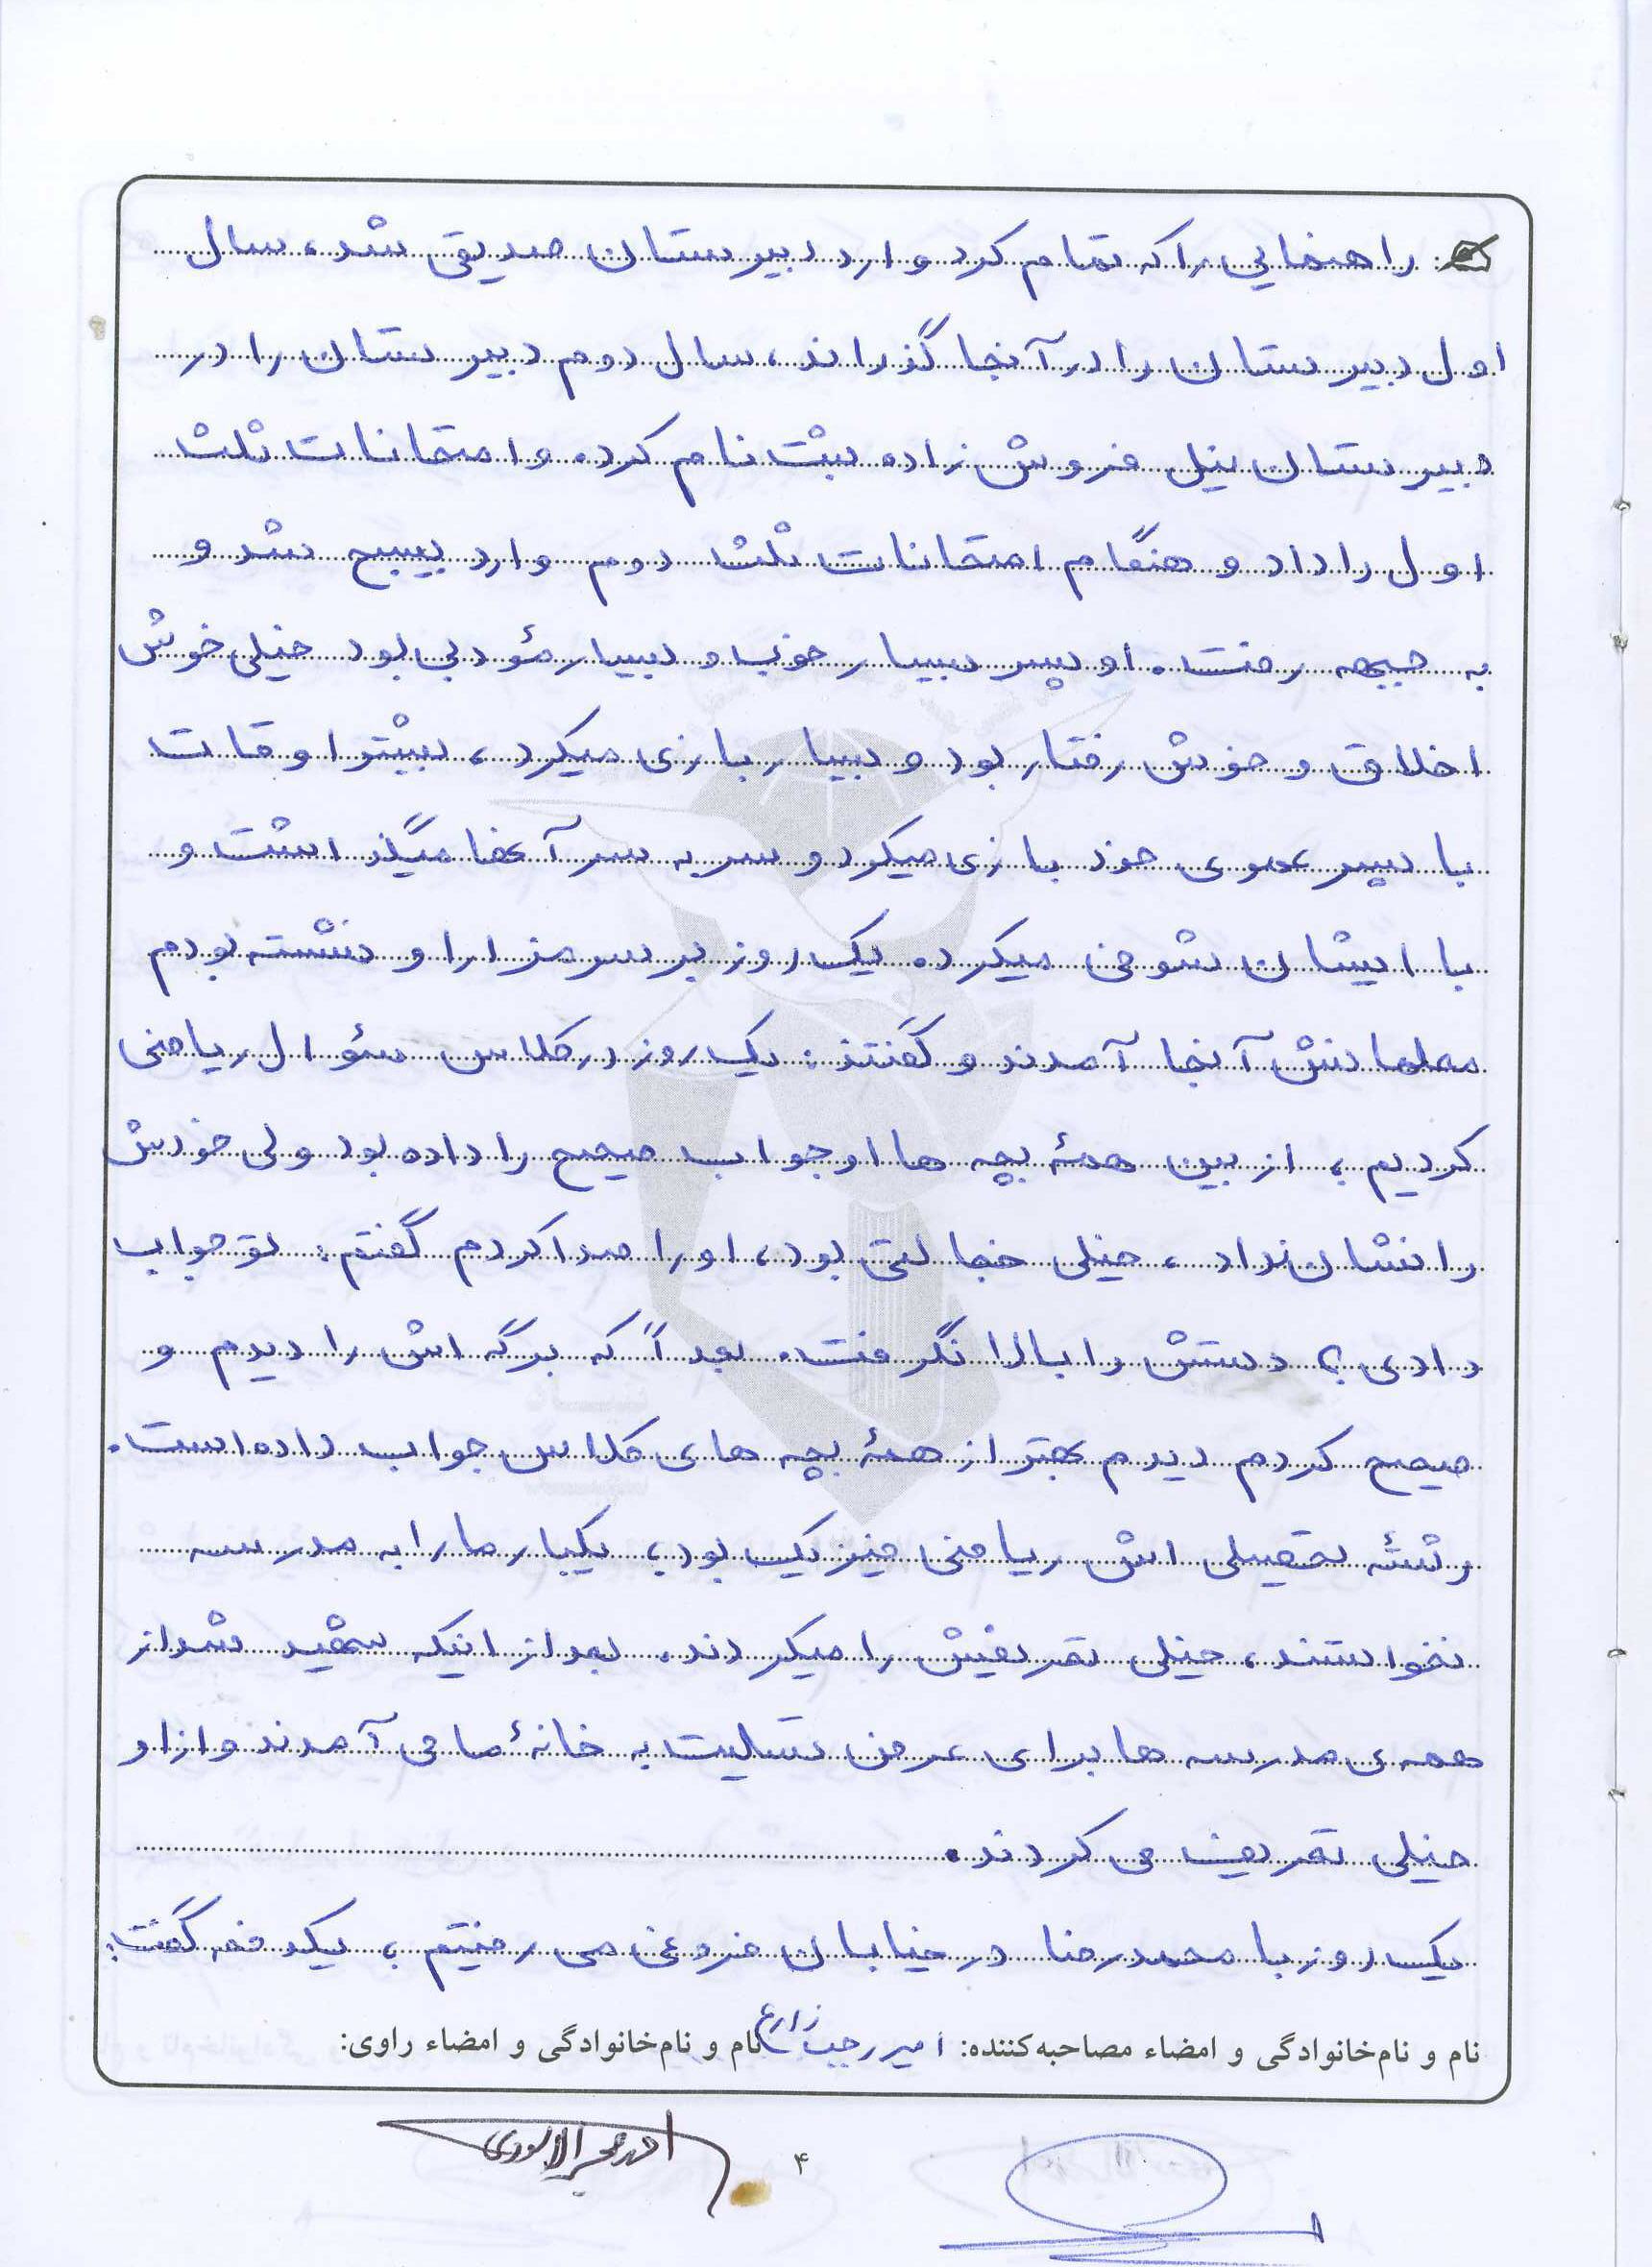 راهنمایی را که تمام کرد وارد دبیرستان صدیقی شد، سال
اول دبیرستان را در آنجا گذراند، سال دوم دبیرستان را در
دبیرستان نیل فروش زاده ثبت نام کرد. و امتحانات ثلث
اول را داد و هنگام امتحانات ثلث دوم وارد بسیج شد و
به جبهه رفت. او پسر بسیار خوب و بسیار مؤدبی بود خیلی خوش
اخلاق و خوش رفتار بود و بسیار بازی میکرد، بیشتر اوقات
با پسر عموی خود بازی میکرد و سر به سر آنها میگذاشت و
با ایشان شوخی میکرد. یک روز بر سر مزار او نشسته بودم
معلمانش آنجا آمدند و گفتند: یک روز در کلاس سئوال ریاضی
کردیم، از بین همۀ بچه ها او جواب صحیح را داده بود ولی خودش
را نشان نداد، خیلی خجالتی بود، او را صدا کردم گفتم: تو جواب
دادی؟ دستش را بالا نگرفت. بعداً که برگه اش را دیدم و
صحیح کردم دیدم بهتر از همۀ بچه های کلاس جواب داده است.
رشتۀ تحصیلی اش ریاضی فیزیک بود، یکبار ما را به مدرسه
نخواستند، خیلی تعریفش را میکردند. بعد از اینکه شهید شد از
همه ی مدرسه ها برای عرض تسلیت به خانۀ ما می آمدند و از او
خیلی تعریف می کردند.
یک روز با محمدرضا در خیابان فروغی می رفتیم، یکدفعه گفت:
نام و نام‌خانوادگی و امضاء مصاحبه‌کننده: امیر رجب زارع نام و نام‌خانوادگی و امضاء راوی:
۴